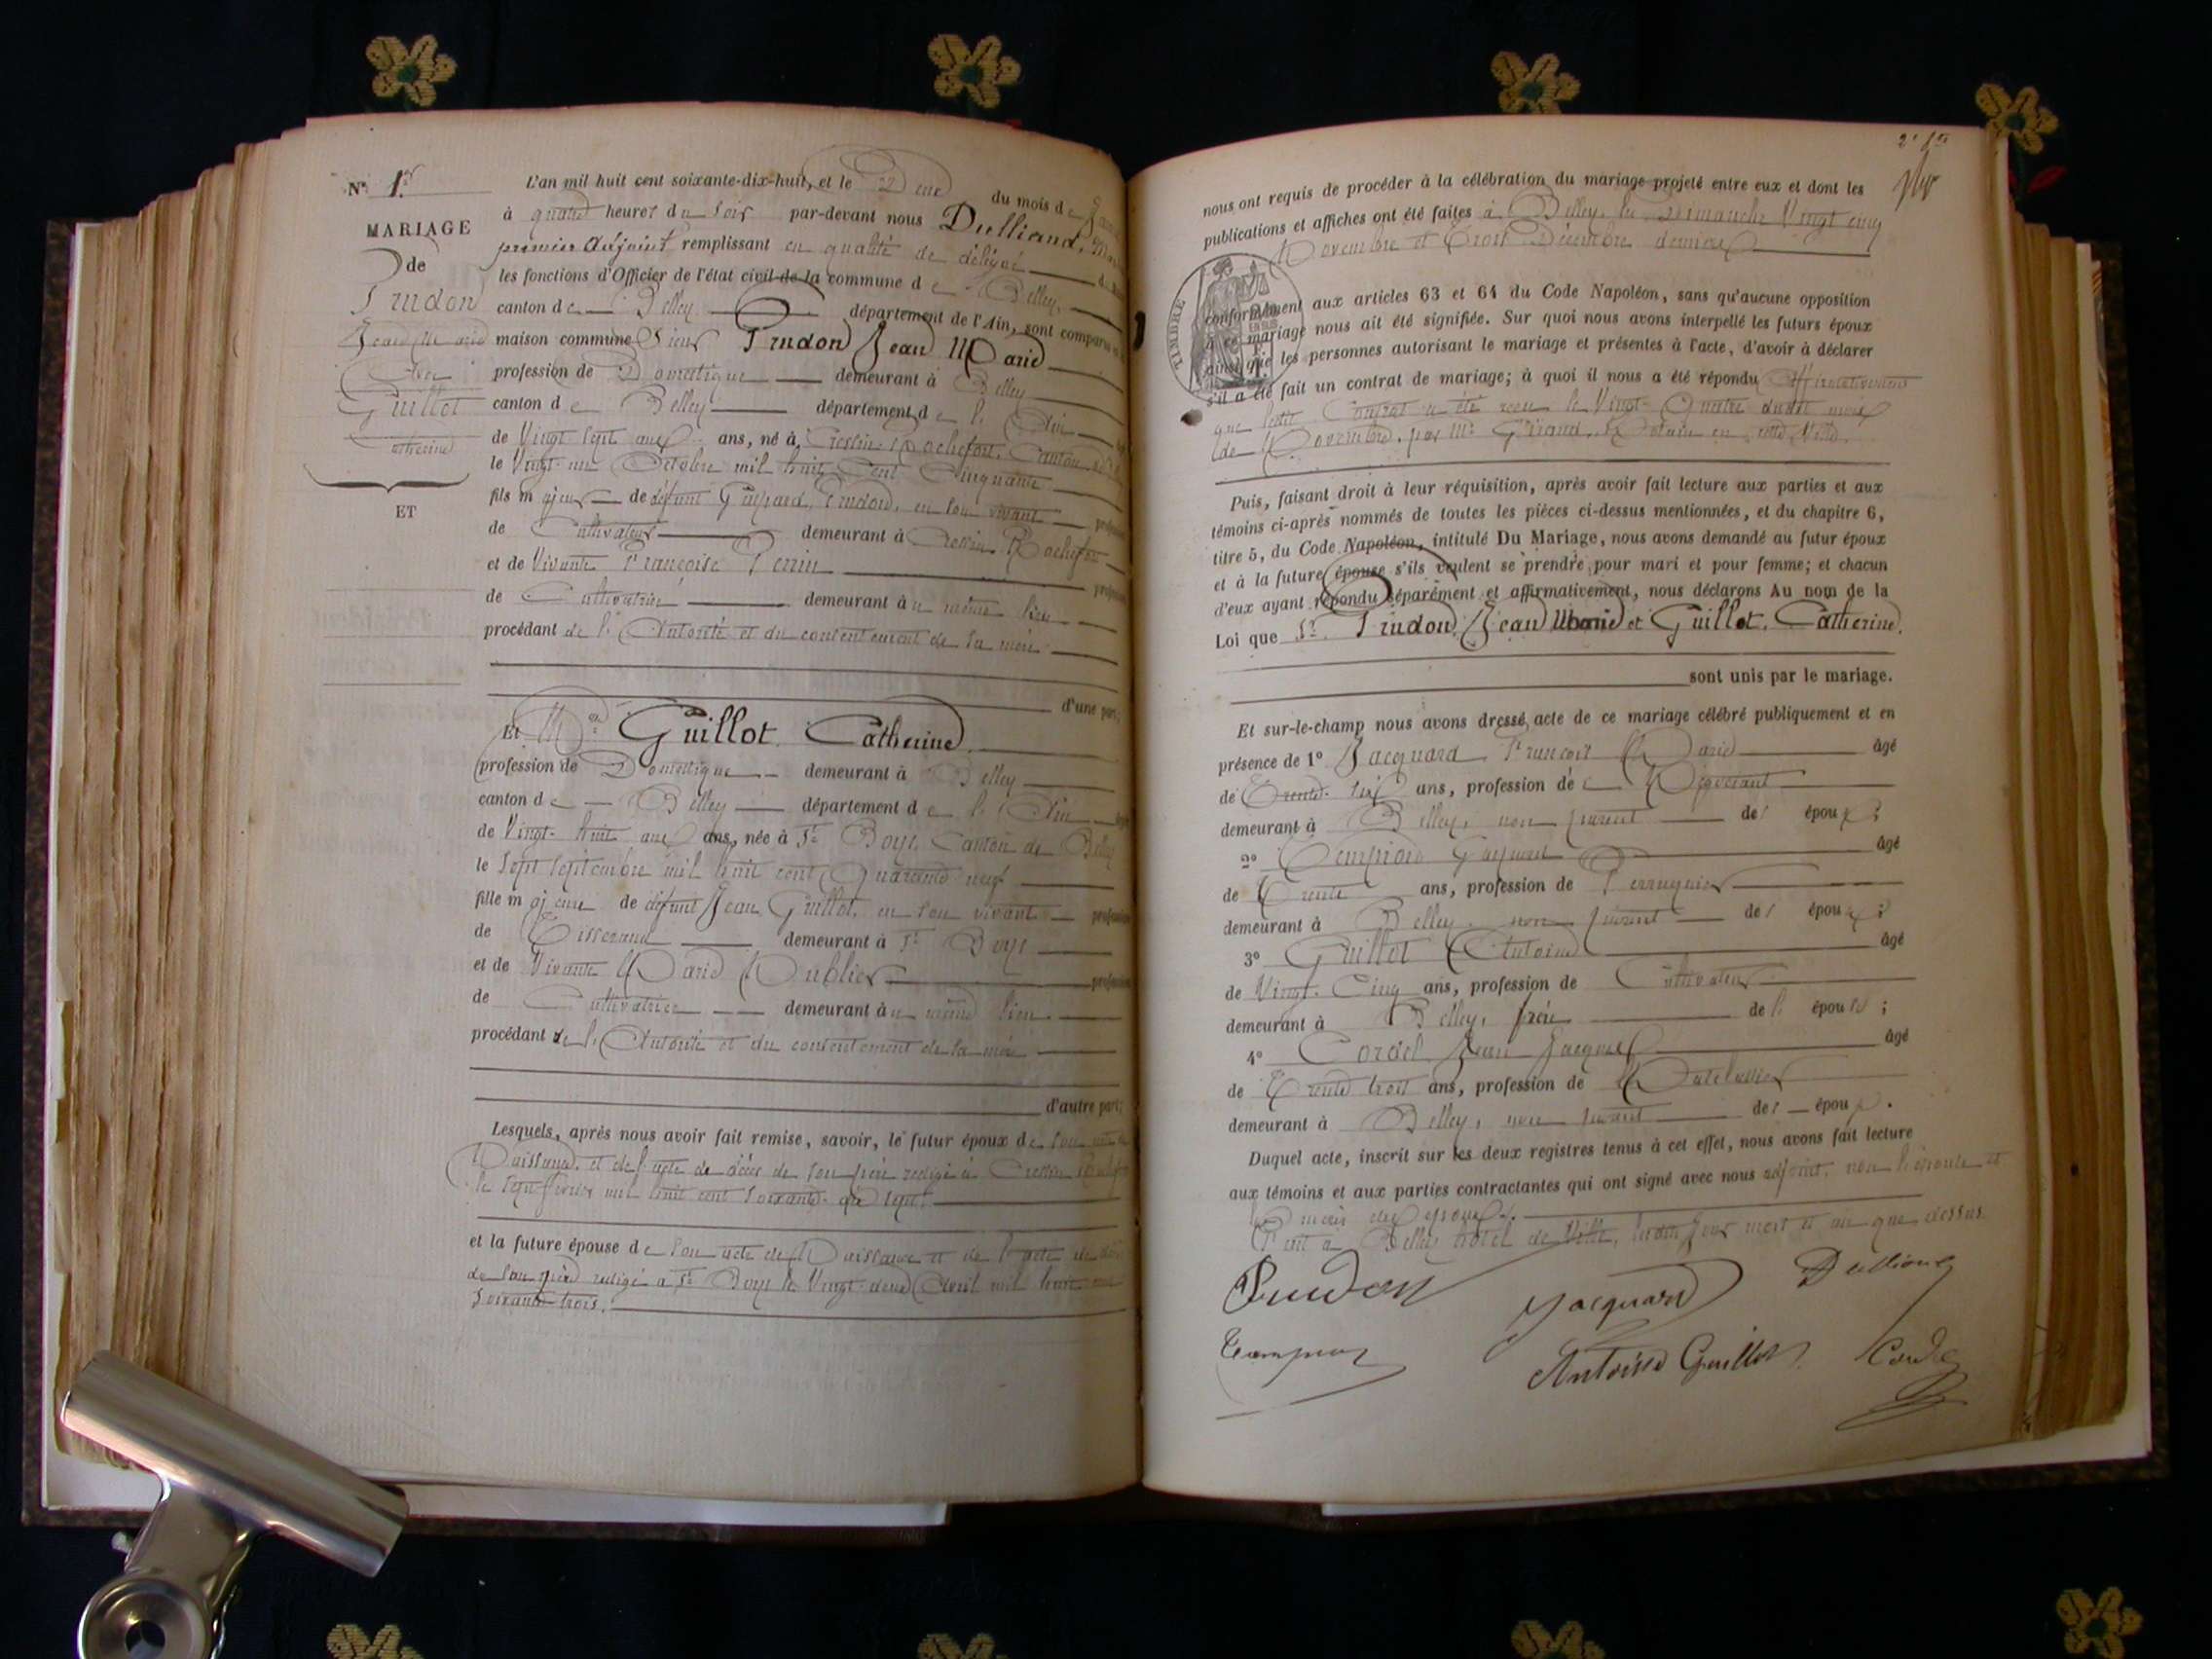 N° 1er
MARIAGE
de
Prudon
Jean Marie
Avec
Guillot
Catherine
ET
L'an mil huit cent soixante-dix-huit, et le Deux du mois de
à quatre heures du soir par-devant nous Dulliand,
premier adjoint remplissant en qualité de délégué
les fonctions d'Officier de l'état civil de la commune de Belley,
canton de Belley département de l'Ain, sont comparus
maison commune Sieur Prudon Jean Marie
profession de Domestique demeurant à Belley
canton de Belley département de l'Ain
de Vingt-sept ans ans, né à Cressin-Rochefort, Canton de
le Vingt-un Octobre mil huit cent Cinquante
fils majeur de défunt Gaspard Prudon, en son vivant
de Cultivateur demeurant à Cressin-Rochefort
et de Vivante Françoise Perrin
de Cultivatrice demeurant au même lieu
procédant de l'Autorité et du consentement de sa mère
d'une part;
Et Guillot Catherine
profession de Domestique demeurant à Belley
canton de Belley département de l'Ain
de Vingt-huit ans ans, née à St Bois, Canton de Belley
le Sept Septembre mil huit cent Quarante neuf
fille majeure de défunt Jean Guillot, en son vivant
de Tisserand demeurant à St Bois
et de Vivante Marie
de Cultivatrice demeurant au même lieu
procédant de l'Autorité et du consentement de sa mère
d'autre part;
Lesquels, après nous avoir fait remise, savoir, le futur époux de son acte
Naissance, et de l'acte de décès de son père rédigé à Cressin
le Sept février mil huit cent soixante
et la future épouse de son acte de Naissance et de l'acte de
de son père rédigé à St Bois le Vingt-deux Avril mil huit
soixante-trois.
nous ont requis de procéder à la célébration du mariage projeté entre eux et dont les
publications et affiches ont été faites à Belley, les Dimanche Vingt cinq
Novembre et Trois Décembre derniers
TIMBRE
conformément aux articles 63 et 64 du Code Napoléon, sans qu'aucune opposition
à ce mariage nous ait été signifiée. Sur quoi nous avons interpellé les futurs époux
ainsi que les personnes autorisant le mariage et présentes à l'acte, d'avoir à déclarer
s'il a été fait un contrat de mariage; à quoi il nous a été répondu affirmativement
que ledit Contrat a été reçu le Vingt-Quatre dudit mois
de Novembre, par Me Notaire en cette Ville.
Puis, faisant droit à leur réquisition, après avoir fait lecture aux parties et aux
témoins ci-après nommés de toutes les pièces ci-dessus mentionnées, et du chapitre 6,
titre 5, du Code Napoléon, intitulé Du Mariage, nous avons demandé au futur époux
et à la future épouse s'ils veulent se prendre pour mari et pour femme; et chacun
d'eux ayant répondu séparément et affirmativement, nous déclarons Au nom de la
Loi que Sr Prudon, Jean Marie et Guillot, Catherine.
sont unis par le mariage.
Et sur-le-champ nous avons dressé acte de ce mariage célébré publiquement et en
présence de 1° Jacquard François Marie âgé
de Trente-six ans, profession de Négociant
demeurant à Belley, non parent des époux;
2° Gaspard âgé
de Trente ans, profession de Perruquier
demeurant à Belley, non parent des époux;
3° Guillot Antoine âgé
de Vingt-Cinq ans, profession de Cultivateur
demeurant à Belley, frère de l'épouse;
4° Jean Jacques âgé
de Trente trois ans, profession de Matelassier
demeurant à Belley, non parent des époux.
Duquel acte, inscrit sur les deux registres tenus à cet effet, nous avons fait lecture
aux témoins et aux parties contractantes qui ont signé avec nous adjoint, non l'épouse et
mères des époux.
Fait à Belley hôtel de Ville, lesdits jour mois et an que dessus.
Prudon
Jacquard
Dulliand
Antoine Guillot